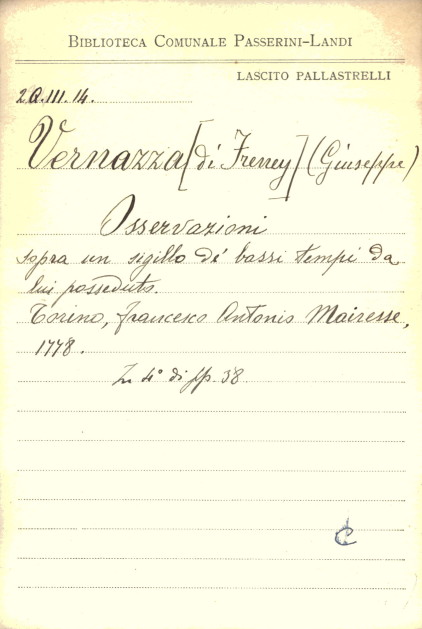 BIBLIOTECA COMUNALE PASSERINI-LANDI
LASCITO PALLASTRELLI
2Q.III.14.
Vernazza [di Freney] (Giuseppe)
Osservazioni
sopra un sigillo de' bassi tempi da
lui posseduto.
Torino, Francesco Antonio Mairesse,
1778.
In 4° di pp. 38
C